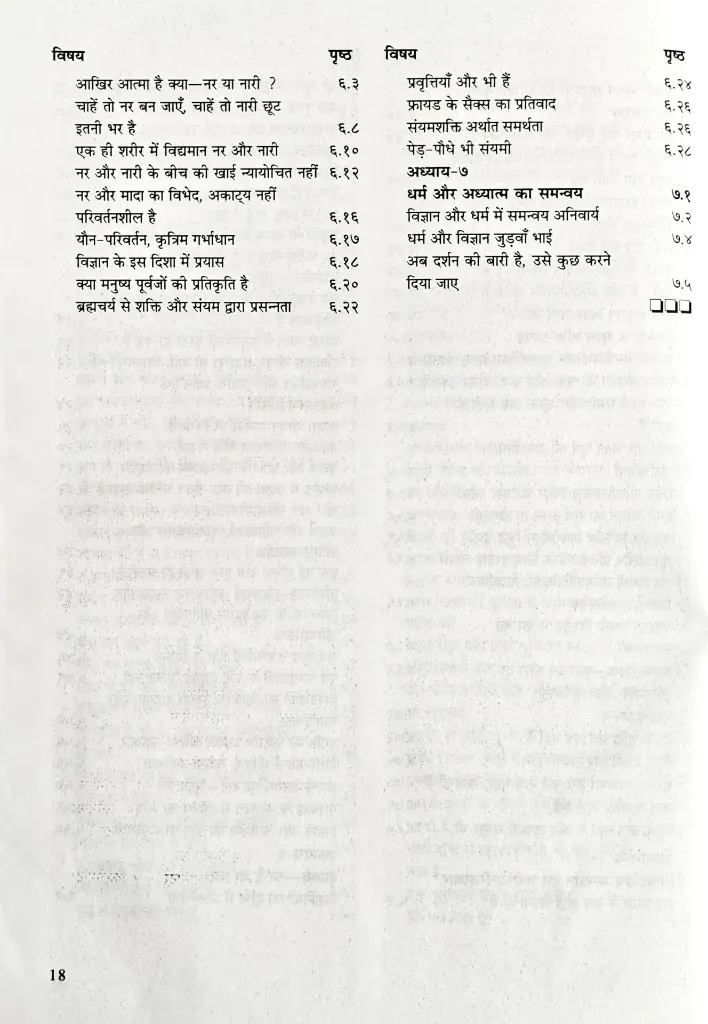 विषय पृष्ठ
आखिर आत्मा है क्या—नर या नारी ? ६.३
चाहें तो नर बन जाएँ, चाहें तो नारी छूट
इतनी भर है ६.८
एक ही शरीर में विद्यमान नर और नारी ६.१०
नर और नारी के बीच की खाई न्यायोचित नहीं ६.१२
नर और मादा का विभेद, अकाट्य नहीं
परिवर्तनशील है ६.१६
यौन-परिवर्तन, कृत्रिम गर्भाधान ६.१७
विज्ञान के इस दिशा में प्रयास ६.१८
क्या मनुष्य पूर्वजों की प्रतिकृति है ६.२०
ब्रह्मचर्य से शक्ति और संयम द्वारा प्रसन्नता ६.२२
विषय पृष्ठ
प्रवृत्तियाँ और भी हैं ६.२४
फ्रायड के सैक्स का प्रतिवाद ६.२६
संयमशक्ति अर्थात समर्थता ६.२६
पेड़-पौधे भी संयमी ६.२८
अध्याय-७
धर्म और अध्यात्म का समन्वय ७.१
विज्ञान और धर्म में समन्वय अनिवार्य ७.२
धर्म और विज्ञान जुड़वाँ भाई ७.४
अब दर्शन की बारी है, उसे कुछ करने
दिया जाए ७.५
❑❑❑
18